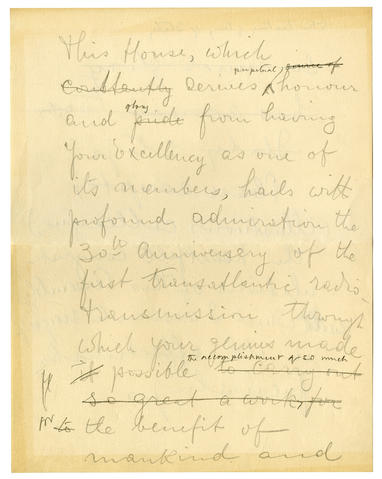 This House, which
perpetual, source of
constantly derives honour
glory
and pride from having
Your Excellency as one of
its members, hails with
profound admiration the
30th Anniversary of the
first transatlantic radio-
transmission through
which your genius made
the accomplishment of so much
it possible to carry out
so great a work, for
for to the benefit of
mankind and